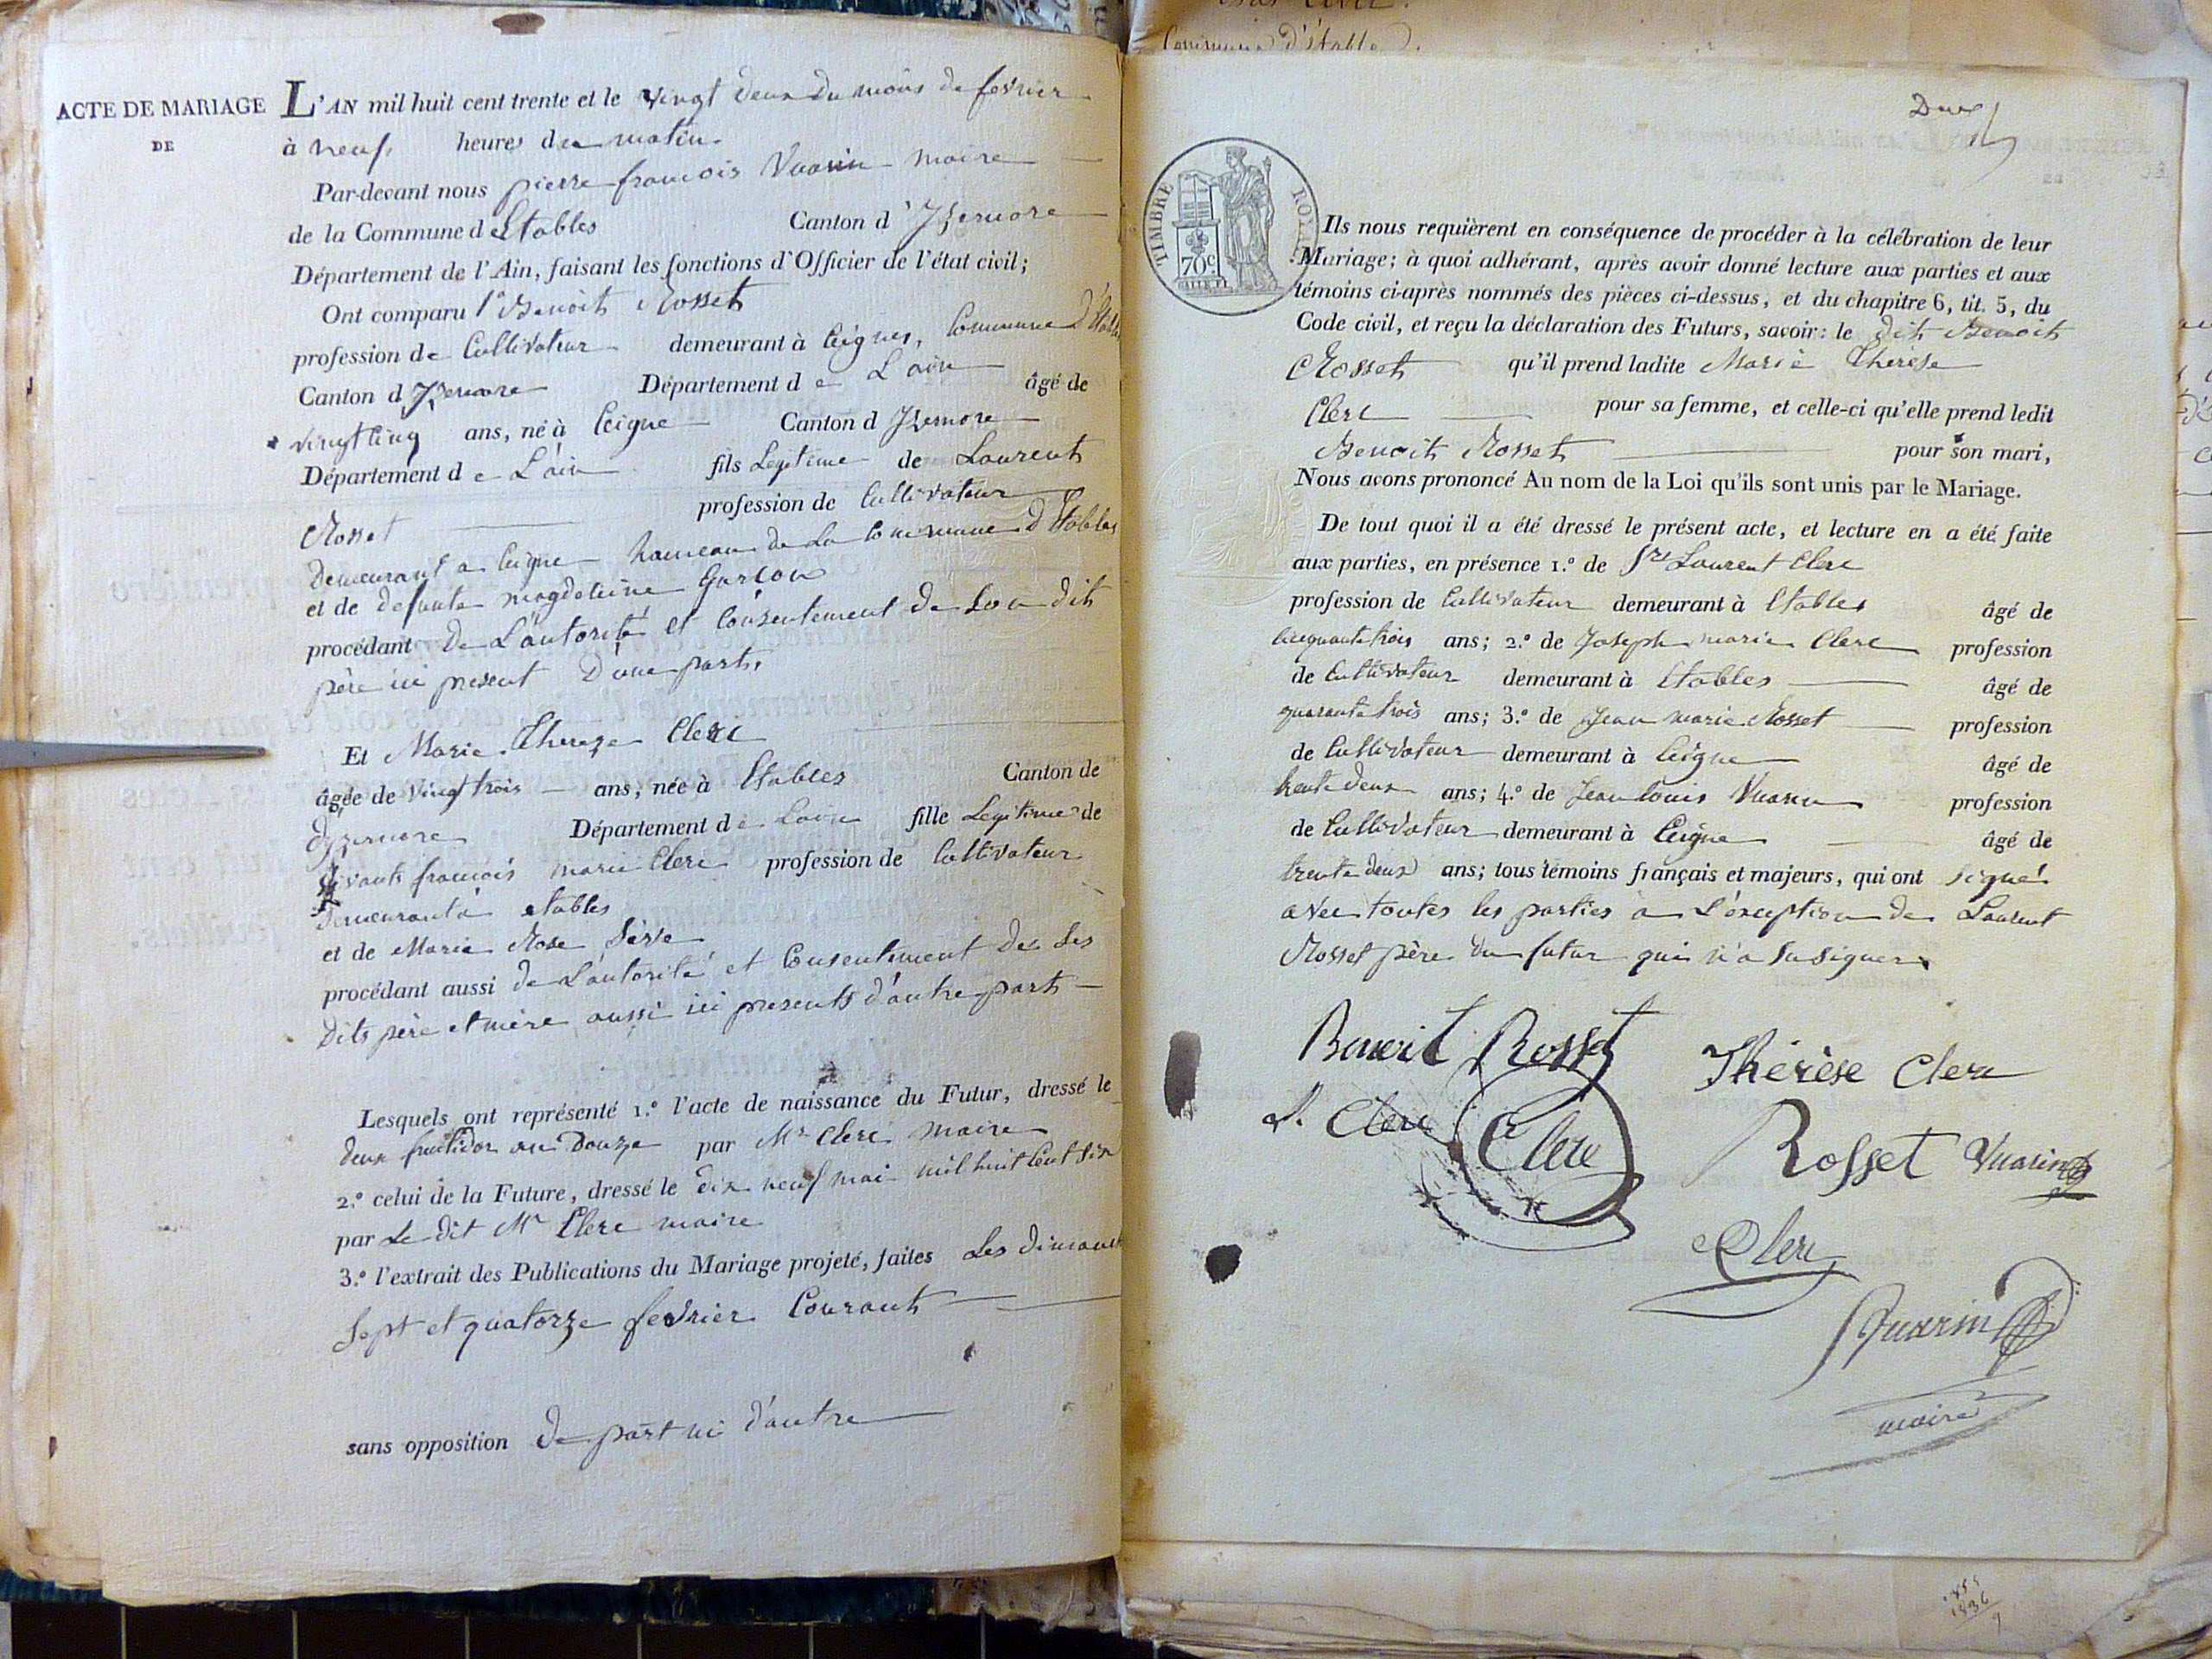 ACTE DE MARIAGE
DE
L'AN mil huit cent trente et le vingt deux du mois de fevrier
à neuf heures du matin
Par-devant nous pierre francois Vuarin maire
de la Commune d'Etables Canton d'Izernore
Département de l'Ain, faisant les fonctions d'Officier de l'état civil;
Ont comparu 1° Benoit Rosset
profession de Cultivateur demeurant à Ceignes, Commune d'Etables
Canton d Izernore Département de L'ain âgé de
vingt cinq ans, né à Ceigne Canton d Izernore
Département de L'ain fils Legitime de Laurent
Rosset profession de Cultivateur
demeurant a Ceigne hameau de la Commune d'Etables
et de defunte magdeleine Garcon
procédant de L'autorité et Consentement de Son dit
père ici present D'une part,
Et Marie Thereze Clerc
âgée de vingt trois ans, née à Etables Canton de
dizernore Département de Lain fille Legitime de
vivant francois marie Clerc profession de Cultivateur
demeurant à etables
et de Marie Rose
procédant aussi de L'autorité et Consentement de Ses
Dits père et mère aussi ici presents d'autre part
Lesquels ont représenté 1.° l'acte de naissance du Futur, dressé le
deux fructidor an Douze par Mr Clerc maire
2.° celui de la Future, dressé le dix neuf mai mil huit Cent Six
par Le dit Mr Clerc maire
3.° l'extrait des Publications du Mariage projeté, faites Les dimanch
Sept et quatorze fevrier Courant
sans opposition De part ni d'autre
Commune d'étable
TIMBRE ROYAL
70c
Ils nous requièrent en conséquence de procéder à la célébration de leur
Mariage; à quoi adhérant, après avoir donné lecture aux parties et aux
témoins ci-après nommés des pièces ci-dessus, et du chapitre 6, tit. 5, du
Code civil, et reçu la déclaration des Futurs, savoir: le dit Benoit
Rosset qu'il prend ladite Marie Therese
Clerc pour sa femme, et celle-ci qu'elle prend ledit
Benoit Rosset pour son mari,
Nous avons prononcé Au nom de la Loi qu'ils sont unis par le Mariage.
De tout quoi il a été dressé le présent acte, et lecture en a été faite
aux parties, en présence 1.° de Sr Laurent Clerc
profession de Cultivateur demeurant à Etables âgé de
Cinquante trois ans; 2.° de Joseph marie Clerc profession
de Cultivateur demeurant à Etables âgé de
quarante trois ans; 3.° de Jean marie Rosset profession
de Cultivateur demeurant à Ceigne âgé de
trente deux ans; 4.° de Jean louis Vuarin profession
de Cultivateur demeurant à Ceigne âgé de
trente deux ans; tous témoins français et majeurs, qui ont signé
avec toutes les parties a L'exception de Laurent
Rosset père du futur qui n'a Su signer
Benoit Rosset Thérèse Clerc
L. Clerc Clerc Rosset Vuarin
Clerc
Vuarin
maire
1836
9